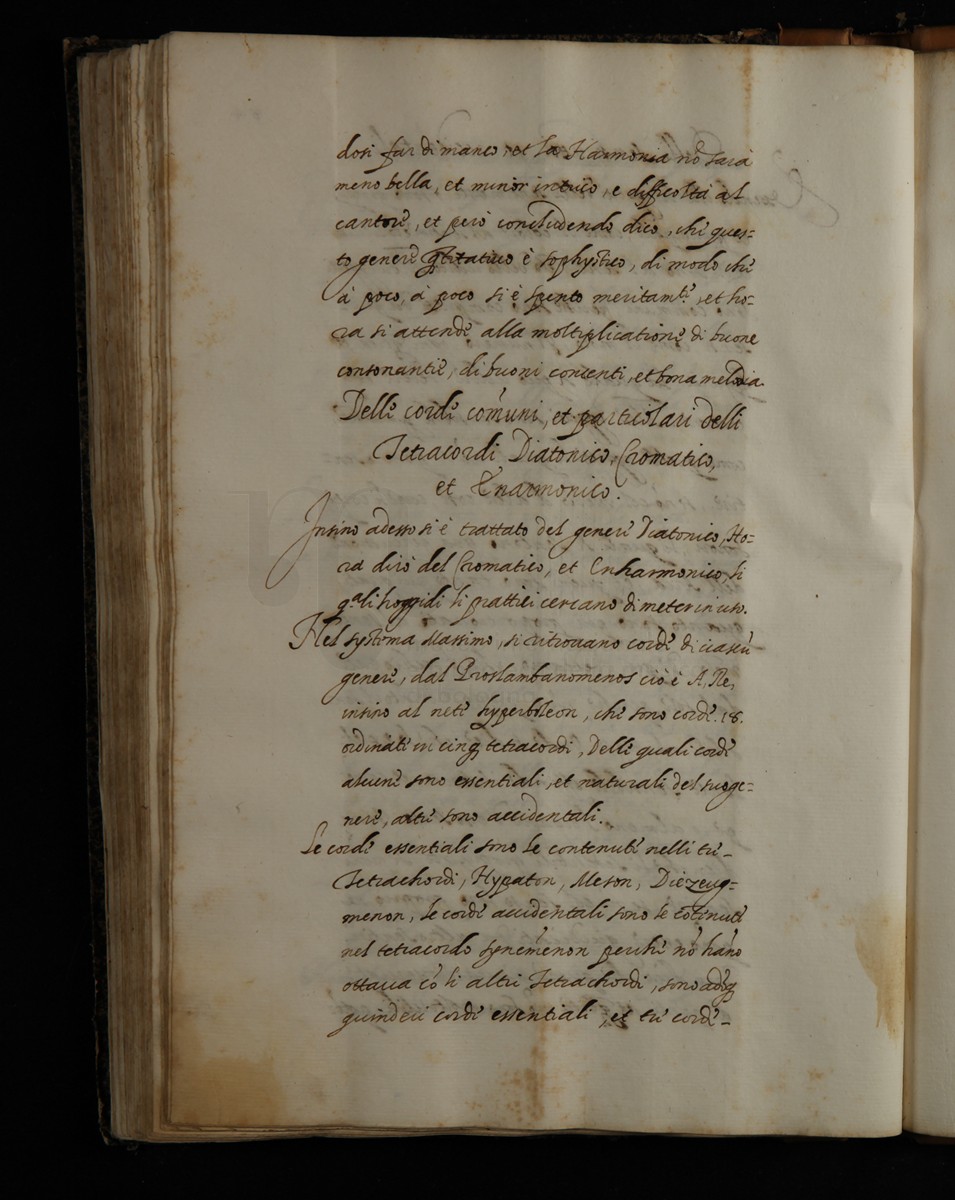 dosi far di manco, et la Harmonia nō sara
meno bella, et minor intrico, e difficolta al
cantore, et però concludendo dico, che ques-
to genere qtitativo è sophystico, di modo che
à poco, à poco si è spento meritamte, et ho-
ra si attende alla moltiplicatione di buone
consonantie, di buoni concenti, et bona melodia.
Delle corde comuni, et particolari delli
Tetracordi Diatonico, Cromatico,
et Enarmonico.
Insino adesso si è trattato del genere Diatonico, Ho-
ra dirò del Cromatico, et Enharmonico, li
qali hoggidi li prattici cercano di meter in uso.
Nel systema Massimo, si ritrovano corde di ciascū
genere, dal Proslambanomenos cio è A, Re,
insino al nete hyperboleon, che sono corde .18.
ordinate in cinq tetracordi, Delle quali corde
alcune sono essentiali, et naturali del suo ge-
nere, altre sono accidentali.
Le corde essentiali sono le contenute nelli tre
Tetrachordi, Hypaton, Meson, Diezeug-
menon, le corde accidentali sono le cōtenute
nel tetracordo synemenon perche nō hāno
ottava cō li altri Tetrachordi, sono adōq
quindeci corde essentiali, et tre corde